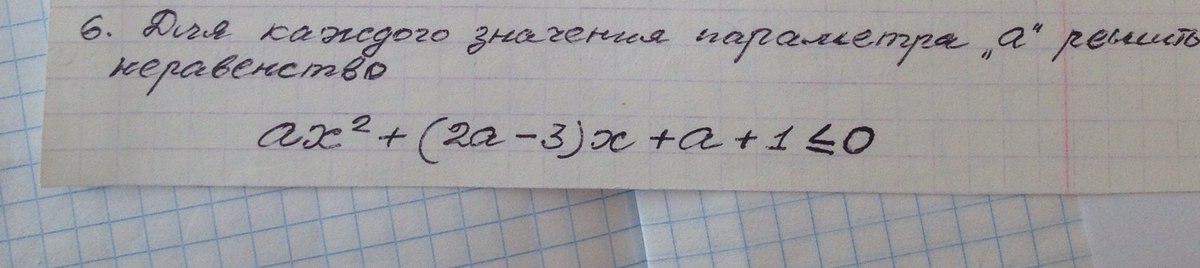 6. Для каждого значения параметра „а“ решить
неравенство
ax² + (2a – 3)x + a + 1 ≤ 0